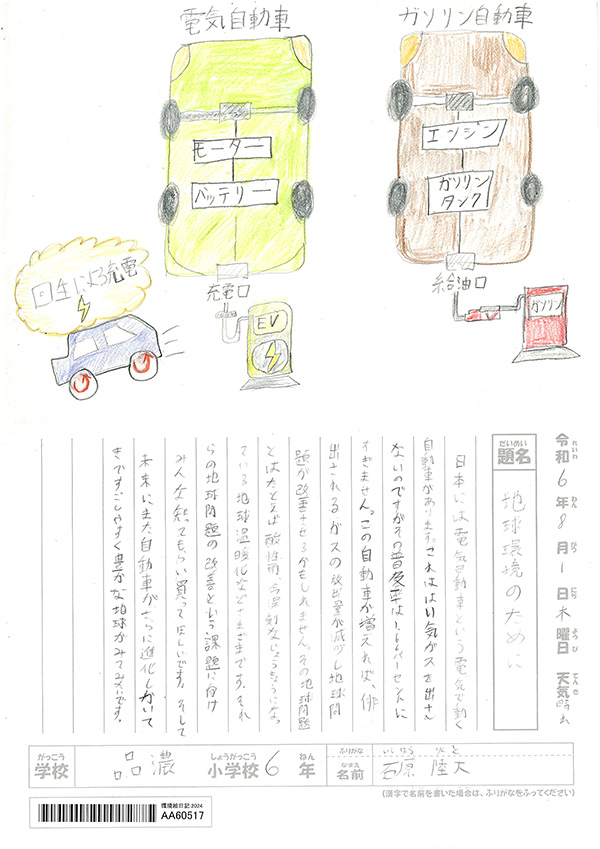 電気自動車
ガソリン自動車
モーター
バッテリー
エンジン
ガソリン
タンク
回生による充電
充電口
給油口
EV
ガソリン
令和6年8月1日木曜日 天気晴れ
れいわ ねん がつ にち ようび てんき
だいめい
題名
地球環境のために
日本には電気自動車という電気で動く
自動車があります。これははい気ガスを出さ
ないのですがその普及率は1.66パーセントに
すぎません。この自動車が増えれば、俳
出されるガスの放出量が減少し地球問
題が改善させるかもしれません。その地球問題
とはたとえば酸性雨、今深刻なじょうきょうになっ
ている地球温暖化などさまざまです。それ
らの地球問題の改善という課題に向け
みんな知ってもらい買ってほしいです。そして
未来にまた自動車がさらに進化しかいて
きですごしやすく豊かな地球がみてみたいです。
がっこう しょうがっこう ねん
学校 品濃 小学校 6年
ふりがな いしはら りくと
なまえ
名前 石原 陸大
(漢字で名前を書いた場合は、ふりがなをふってください)
環境絵日記2024
AA60517